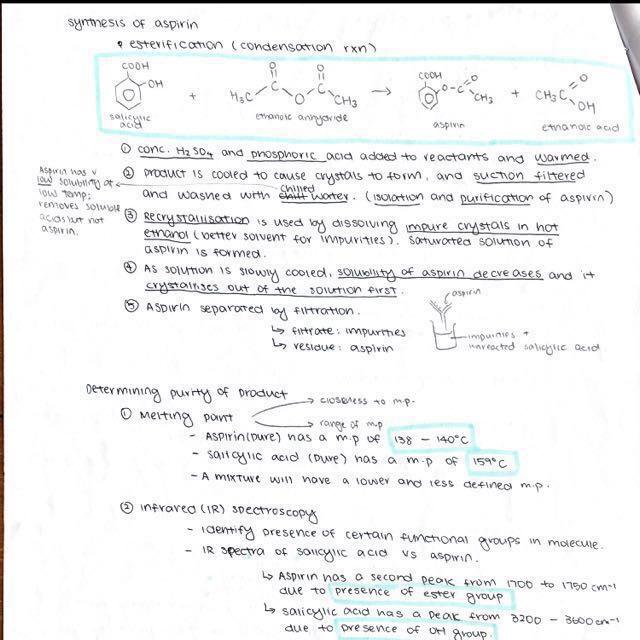 synthesis of aspirin
• esterification (condensation rxn)
COOH
OH
salicylic
acid
+
H₃C
C
O
O
C
O
CH₃
ethanoic anhydride
→
COOH
O-C
O
CH₃
aspirin
+
CH₃C
O
OH
ethanoic acid
① conc. H₂SO₄ and phosphoric acid added to reactants and warmed.
② product is cooled to cause crystals to form, and suction filtered
and washed with chilled water. (isolation and purification of aspirin)
Aspirin has v
low solubility at
low temp;
removes soluble
acids but not
aspirin.
③ Recrystallisation is used by dissolving impure crystals in hot
ethanol (better solvent for impurities). Saturated solution of
aspirin is formed.
④ As solution is slowly cooled, solubility of aspirin decreases and it
crystallises out of the solution first.
⑤ Aspirin separated by filtration.
↳ filtrate: impurities
↳ residue: aspirin
aspirin
impurities +
unreacted salicylic acid
Determining purity of product
① Melting point
closeness to m.p.
range of m.p
- Aspirin (pure) has a m.p of 138 – 140°C
- salicylic acid (pure) has a m.p of 159°C
- A mixture will have a lower and less defined m.p.
② infrared (IR) spectroscopy
- Identify presence of certain functional groups in molecule.
- IR spectra of salicylic acid vs aspirin.
↳ Aspirin has a second peak from 1700 to 1750 cm⁻¹
due to presence of ester group
↳ salicylic acid has a peak from 3200 – 3600 cm⁻¹
due to presence of OH group.